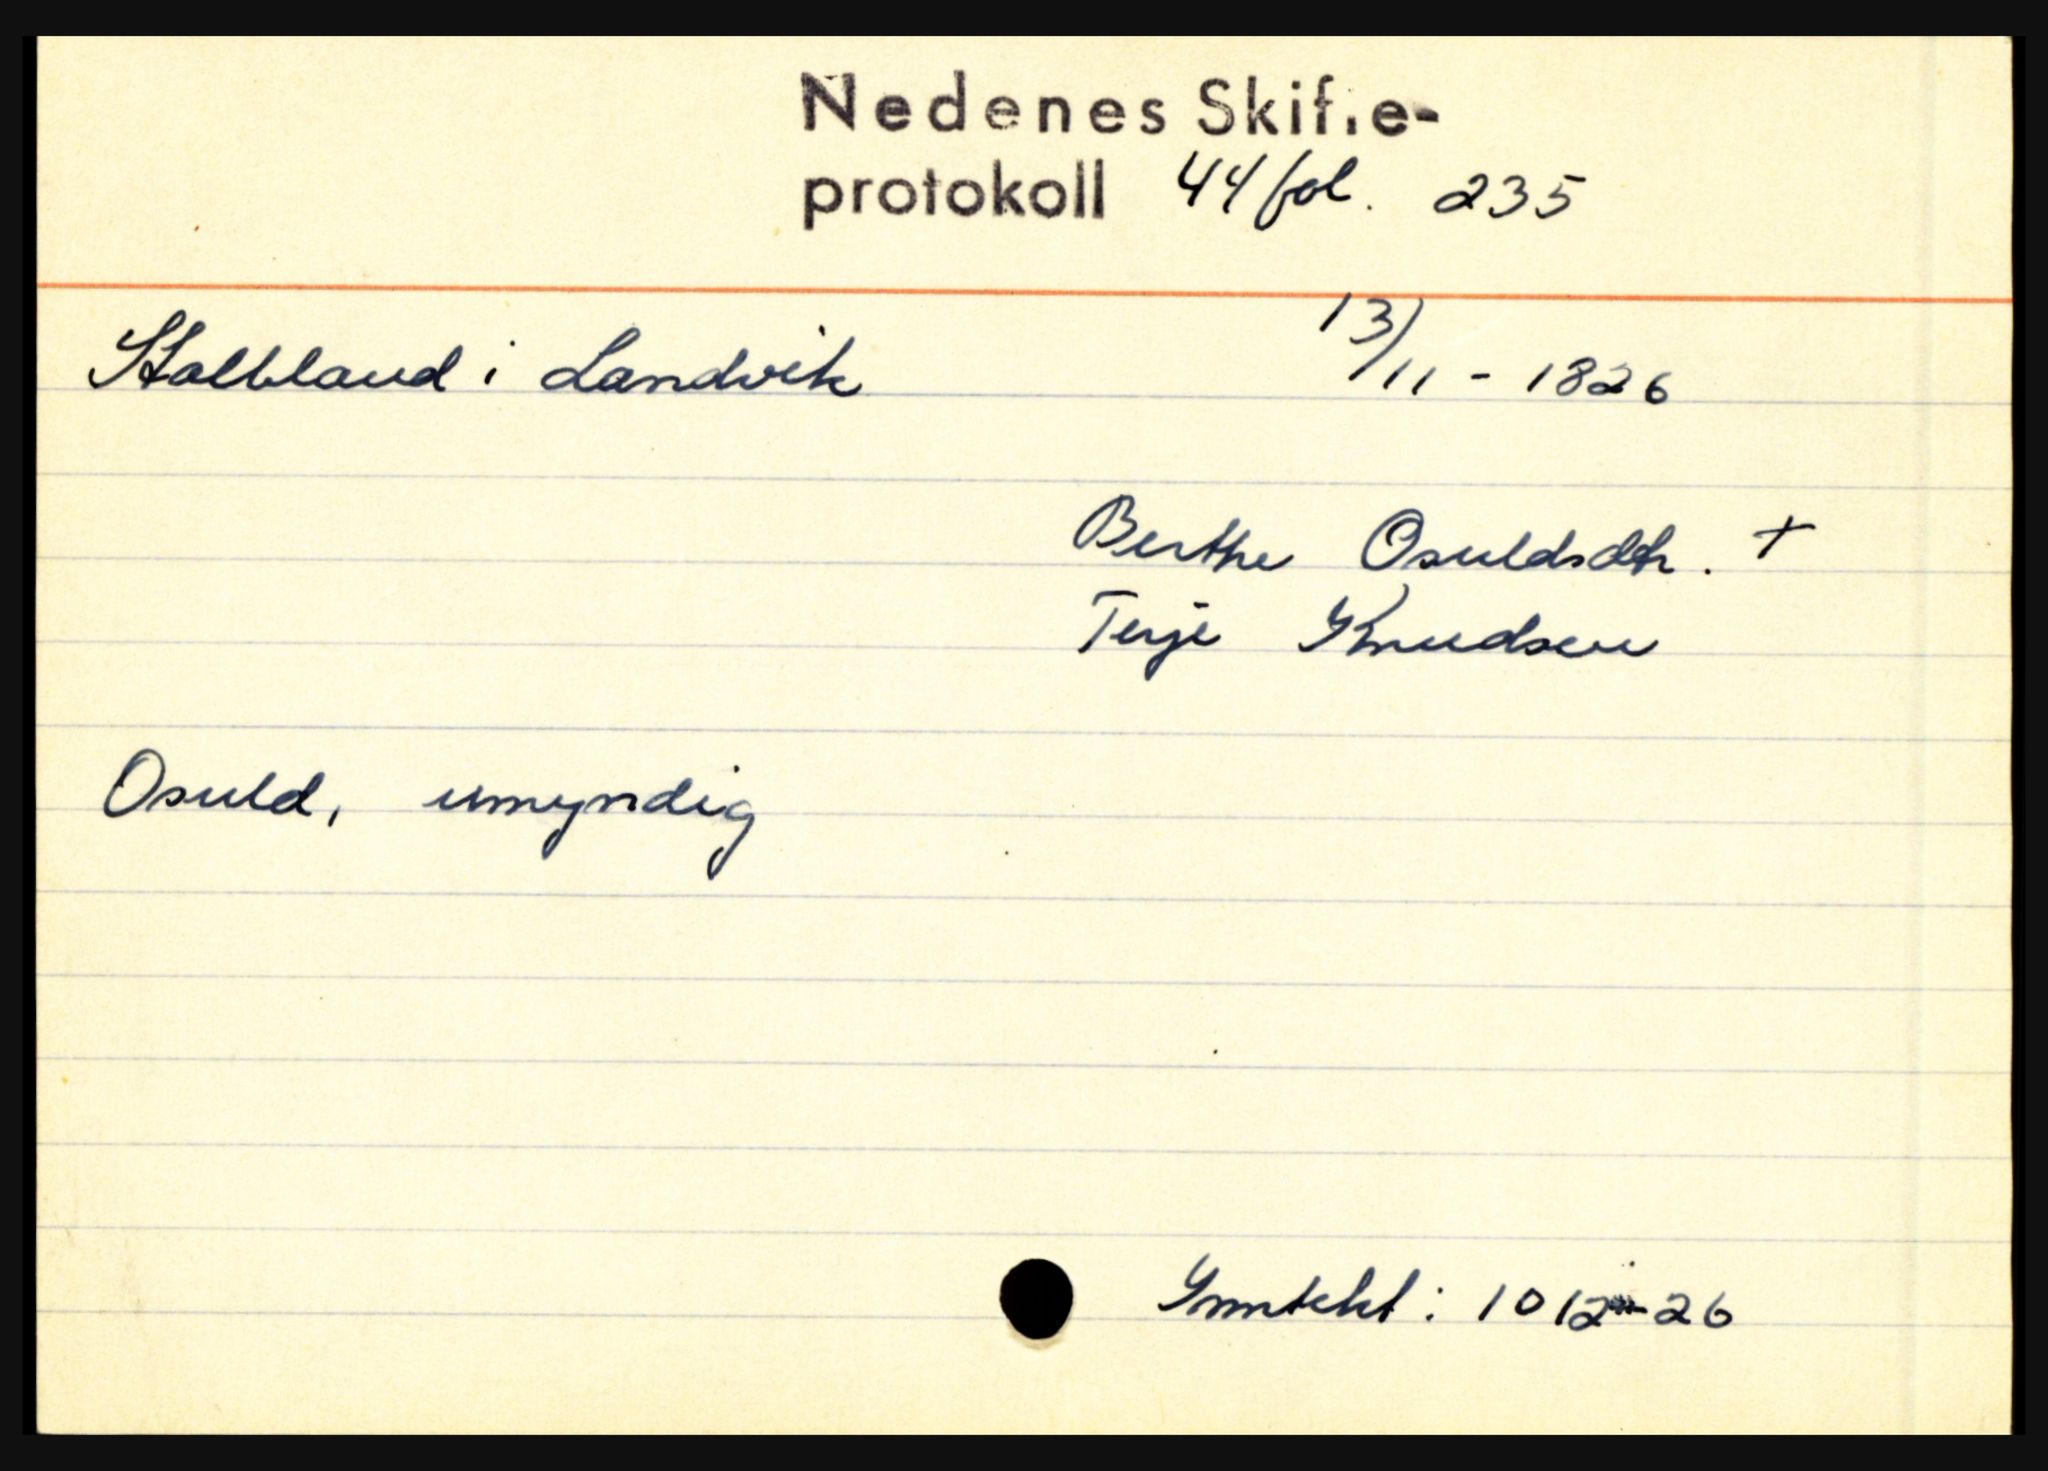 Nedenes Skifte-
protokoll 44 fol. 235
i Landvik 13/11 - 1826
Berthe Osuldsdtr. +
Terje Knudsen
Osuld, umyndig
Inntekt: 1012 - 26